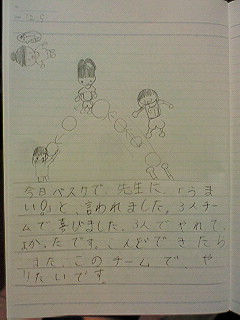 12.5
今日バスケで、先生に、「うま
い！」と、言われました。3人チー
ムで喜びました。3人でやれて、
よかったです。こんどできたら
また、このチームで、や
りたいです。